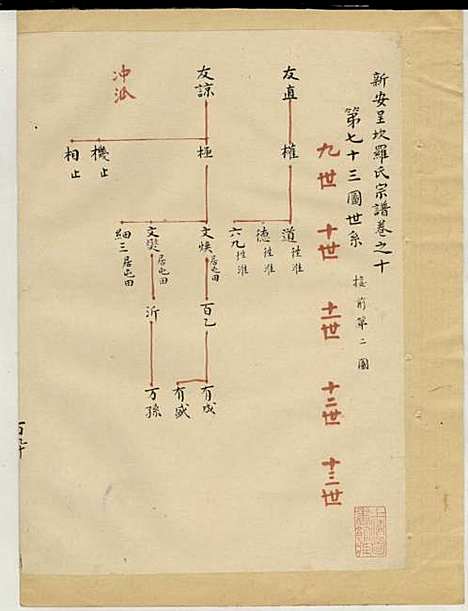 新安呈坎羅氏宗譜卷之十
第七十三圖世系 接前第二圖
九世 十世 十一世 十二世 十三世
友直 權 道 徃淮
德 徃淮
六九 徃淮
友諒 極 文煥 居屯田 百乙 有成
有盛
文奬 居屯田 沂 万孫
細三 居屯田
機止
相止
冲派